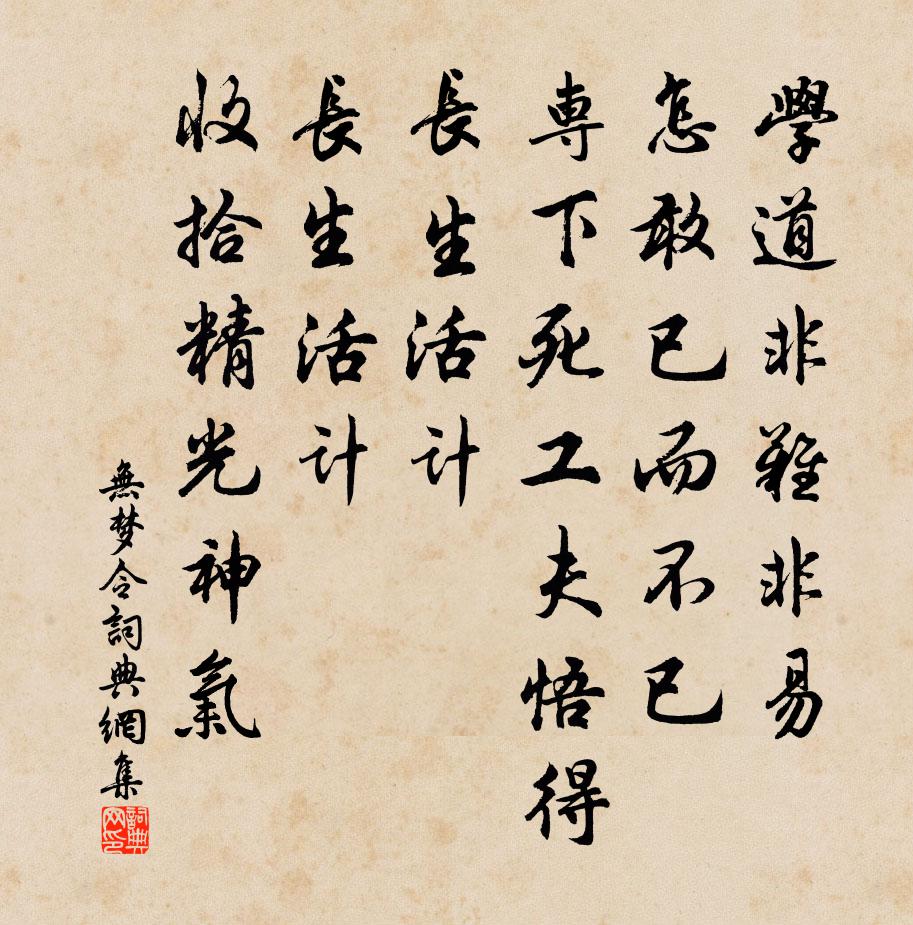 學道非難非易
怎敢已而不已
専下死工夫悟得
長生活计
長生活计
收拾精光神氣
無梦令詞典網集
詞典网印